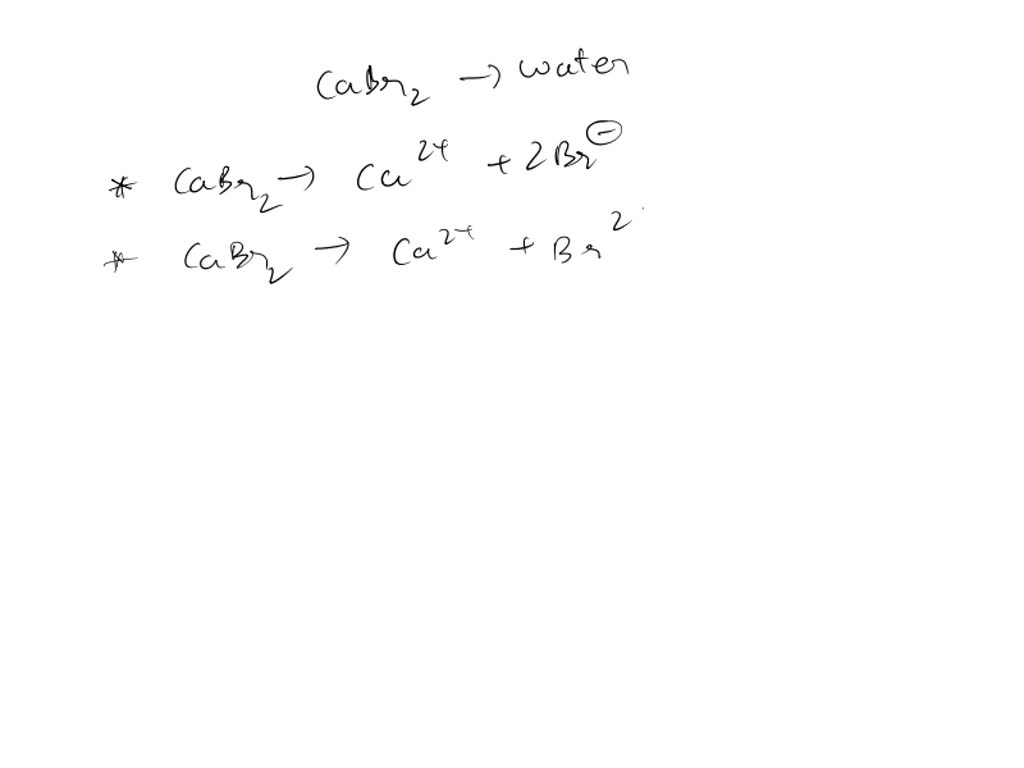 CaBr₂ → water
* CaBr₂ → Ca²⁺ + 2Br⊖
* CaBr₂ → Ca²⁺ + Br²